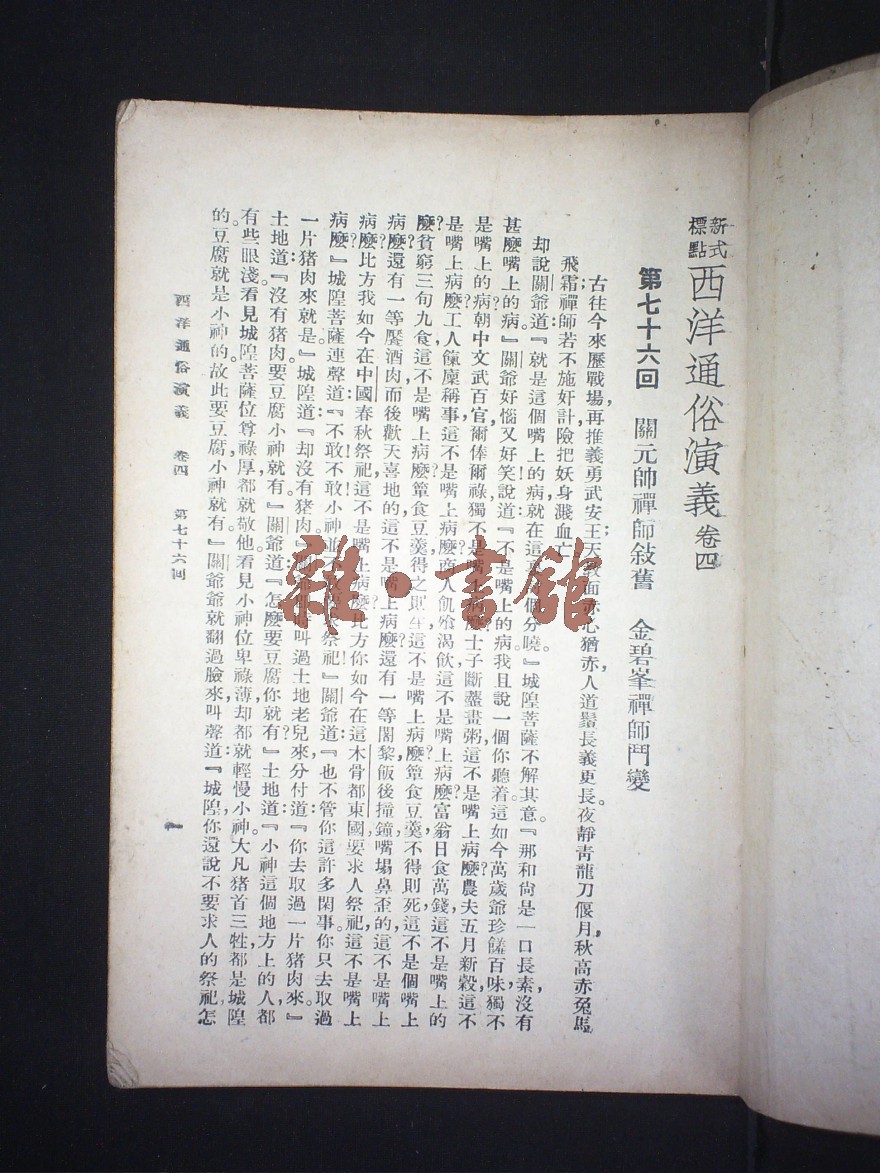 新式標點 西洋通俗演義 卷四
第七十六回 關元帥禪師敍舊 金碧峯禪師鬥變
古往今來歷戰場，再推義勇武安王，天 面赤心猶赤，人道鬚長義更長。夜靜青龍刀偃月，秋高赤兔馬
飛霜，禪師若不施奸計，險把妖身濺血亡。
却說關爺道：『就是這個嘴上的病，就在這 個分曉。』城隍菩薩不解其意。『那和尙是一口長素，沒有
甚麼嘴上的病？』關爺好惱又好笑，說道：『不是嘴上的病，我且說一個你聽着。這如今萬歲爺珍饈百味，獨不
是嘴上的病？朝中文武百官，爾俸爾祿，獨不是嘴上病麼？士子斷虀畫粥，這不是嘴上病麼？農夫五月新穀，這不
是嘴上病麼？工人餼廩稱事，這不是嘴上病麼？商人飢飱渴飲，這不是嘴上病麼？富翁日食萬錢，這不是嘴上的
麼？貧窮三旬九食，這不是嘴上病麼？簞食豆羹，得之則生，這不是嘴上病麼？簞食豆羹，不得則死，這不是個嘴上
病麼？還有一等饜酒肉而後歡天喜地的，這不是嘴上病麼？還有一等闍黎飯後撞鐘，嘴塌鼻歪的，這不是嘴上
病麼？比方我如今在中國春秋祭祀，這不是嘴上病麼？比方你如今在這木骨都東國，要求人祭祀，這不是嘴上
病麼？』城隍菩薩連聲道：『不敢！不敢！小神並不 祭祀！』關爺道：『也不管你這許多閑事，你只去取過
一片猪肉來就是。』城隍道：『却沒有猪肉。』 叫過土地老兒來，分付道：『你去取過一片猪肉來。』
土地道：『沒有猪肉，要豆腐小神就有。』關爺道：『怎麼要豆腐你就有？』土地道：『小神這個地方上的人，都
有些眼淺。看見城隍菩薩位尊祿厚，都就敬他；看見小神位卑祿薄，却都就輕慢小神。大凡猪首三牲，都是城隍
的。豆腐就是小神的。故此要豆腐小神就有。』關爺爺就翻過臉來，叫聲道：『城隍，你還說不要求人的祭祀，怎
西洋通俗演義 卷四 第七十六回
一
雜·書館